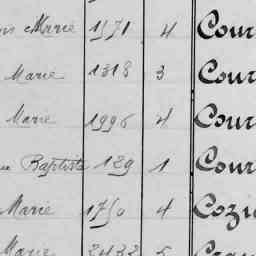 Marie 1571 4 Cour
Marie 1318 3 Cour
Marie 1996 4 Cour
Baptiste 129 1 Cour
Marie 1750 4 Cozi
Marie 2432 5